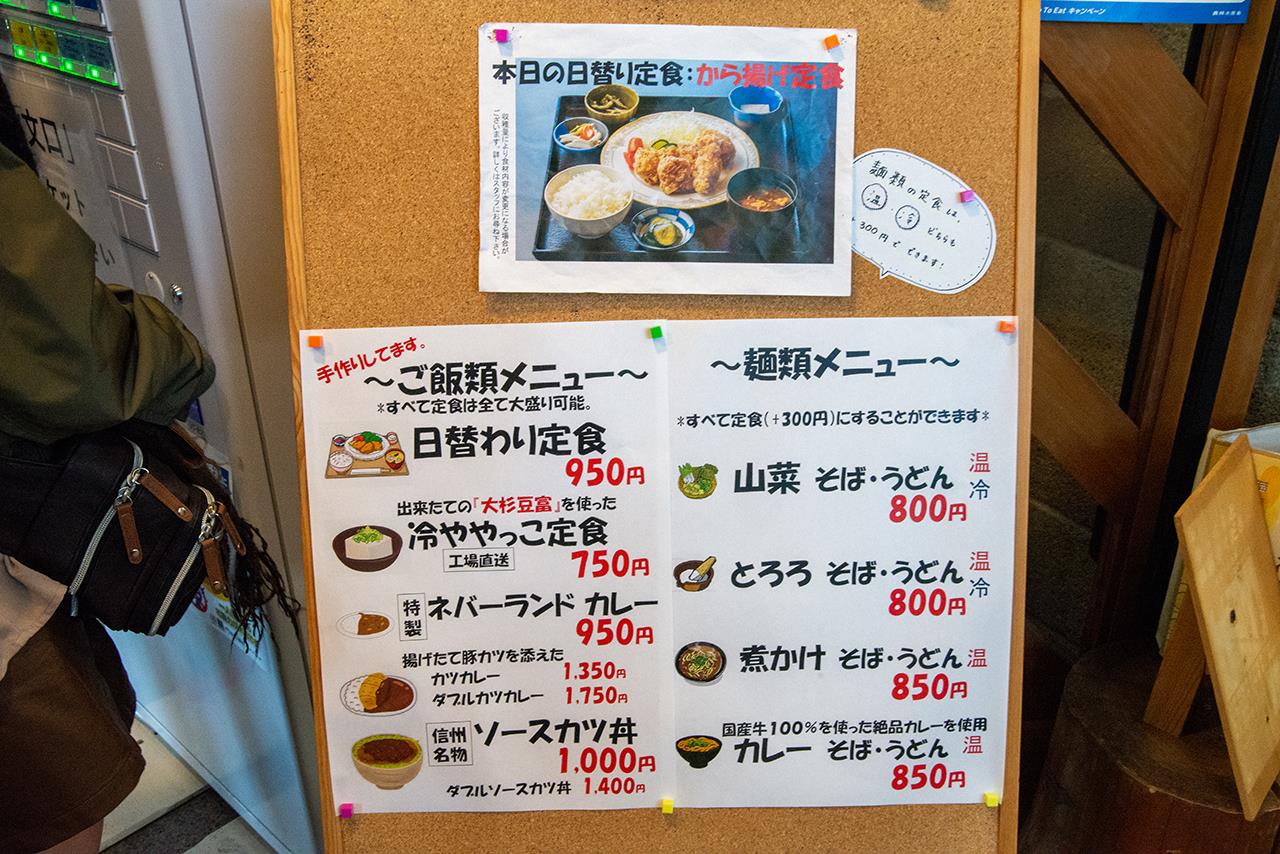 To Eat キャンペーン
文口」
ケット
さい
本日の日替り定食：から揚げ定食
収穫量により食材内容が変更になる場合が
ございます。詳しくはスタッフにお尋ね下さい。
麺類の定食は、
温・冷 どちらも
+300円で できます!
手作りしてます。
～ご飯類メニュー～
＊すべて定食は全て大盛り可能。
日替わり定食
950円
出来たての『大杉豆富』を使った
冷ややっこ定食
工場直送 750円
特製 ネバーランド カレー
950円
揚げたて豚カツを添えた
カツカレー 1,350円
ダブルカツカレー 1,750円
信州名物 ソースカツ丼
1,000円
ダブルソースカツ丼 1,400円
～麺類メニュー～
＊すべて定食(+300円)にすることができます＊
山菜 そば・うどん 温 冷
800円
とろろ そば・うどん 温 冷
800円
煮かけ そば・うどん 温
850円
国産牛100%を使った絶品カレーを使用
カレー そば・うどん 温
850円